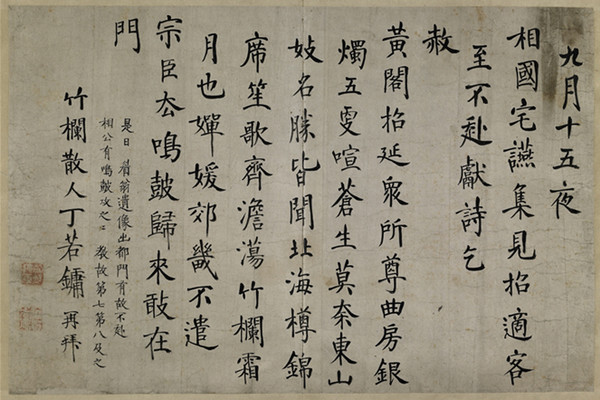 九月十五夜
相國宅讌集見招適客
至不赴獻詩乞
赦
黃閣招延衆所尊曲房銀
燭五更喧蒼生莫奈東山
妓名勝皆聞北海樽錦
席笙歌齊澹蕩竹欄霜
月也嬋媛郊畿不遣
宗臣去鳴鼓歸來敢在
門
是日 翁遺像出都門有故不赴
相公有鳴鼓攻之之 敎故第七第八及之
竹欄散人丁若鏞再拜